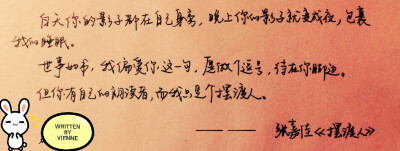 白天你的影子都在自己身旁，晚上你的影子就变成夜，包裹
我的睡眠。
世事如书，我偏爱你这一句，愿做个逗号，待在你脚边。
但你有自己的朗读者，而我只是个摆渡人。
—— 张嘉佳《摆渡人》
WRITTEN
BY
VIENNE